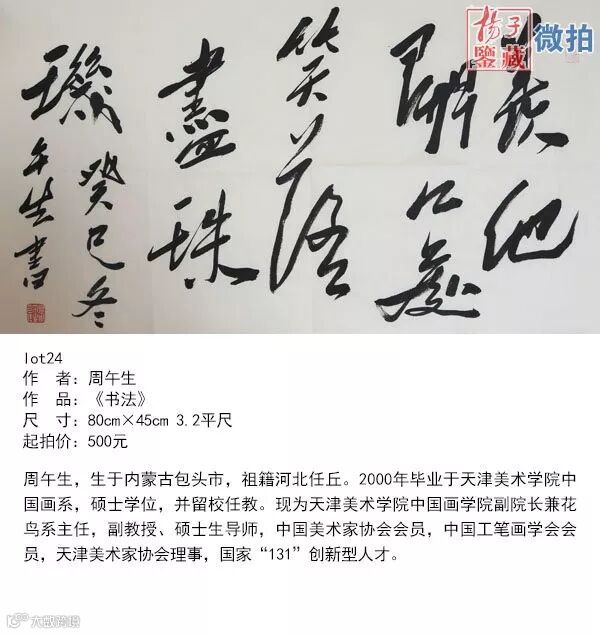 揚子
鑒藏
微拍
羨他
處
笑落
盡珠
璣 癸巳冬
午生書
lot24
作　者：周午生
作　品：《书法》
尺　寸：80cm×45cm 3.2平尺
起拍价：500元
周午生，生于内蒙古包头市，祖籍河北任丘。2000年毕业于天津美术学院中
国画系，硕士学位，并留校任教。现为天津美术学院中国画学院副院长兼花
鸟系主任，副教授、硕士生导师，中国美术家协会会员，中国工笔画学会会
员，天津美术家协会理事，国家“131”创新型人才。
大数跨境